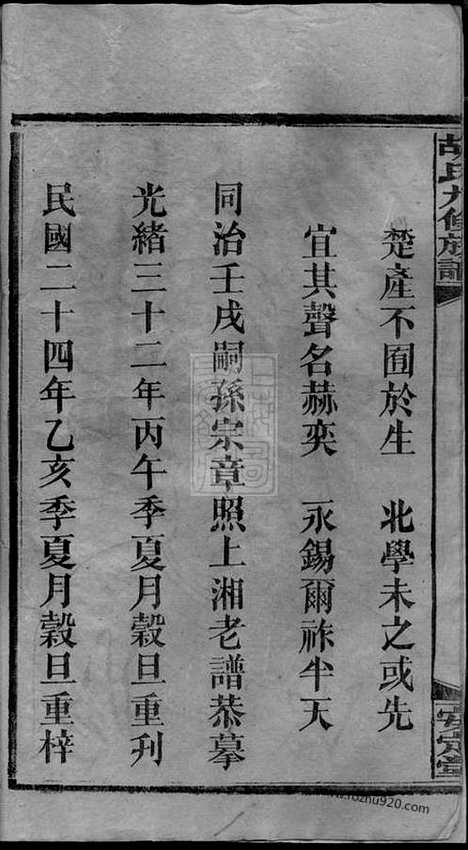 胡氏九修族譜
楚產不囿於生　北學未之或先
宜其聲名赫奕　永錫爾祚半天
同治壬戌嗣孫宗章照上湘老譜恭摹
光緒三十二年丙午季夏月穀旦重刋
民國二十四年乙亥季夏月穀旦重梓
安定堂